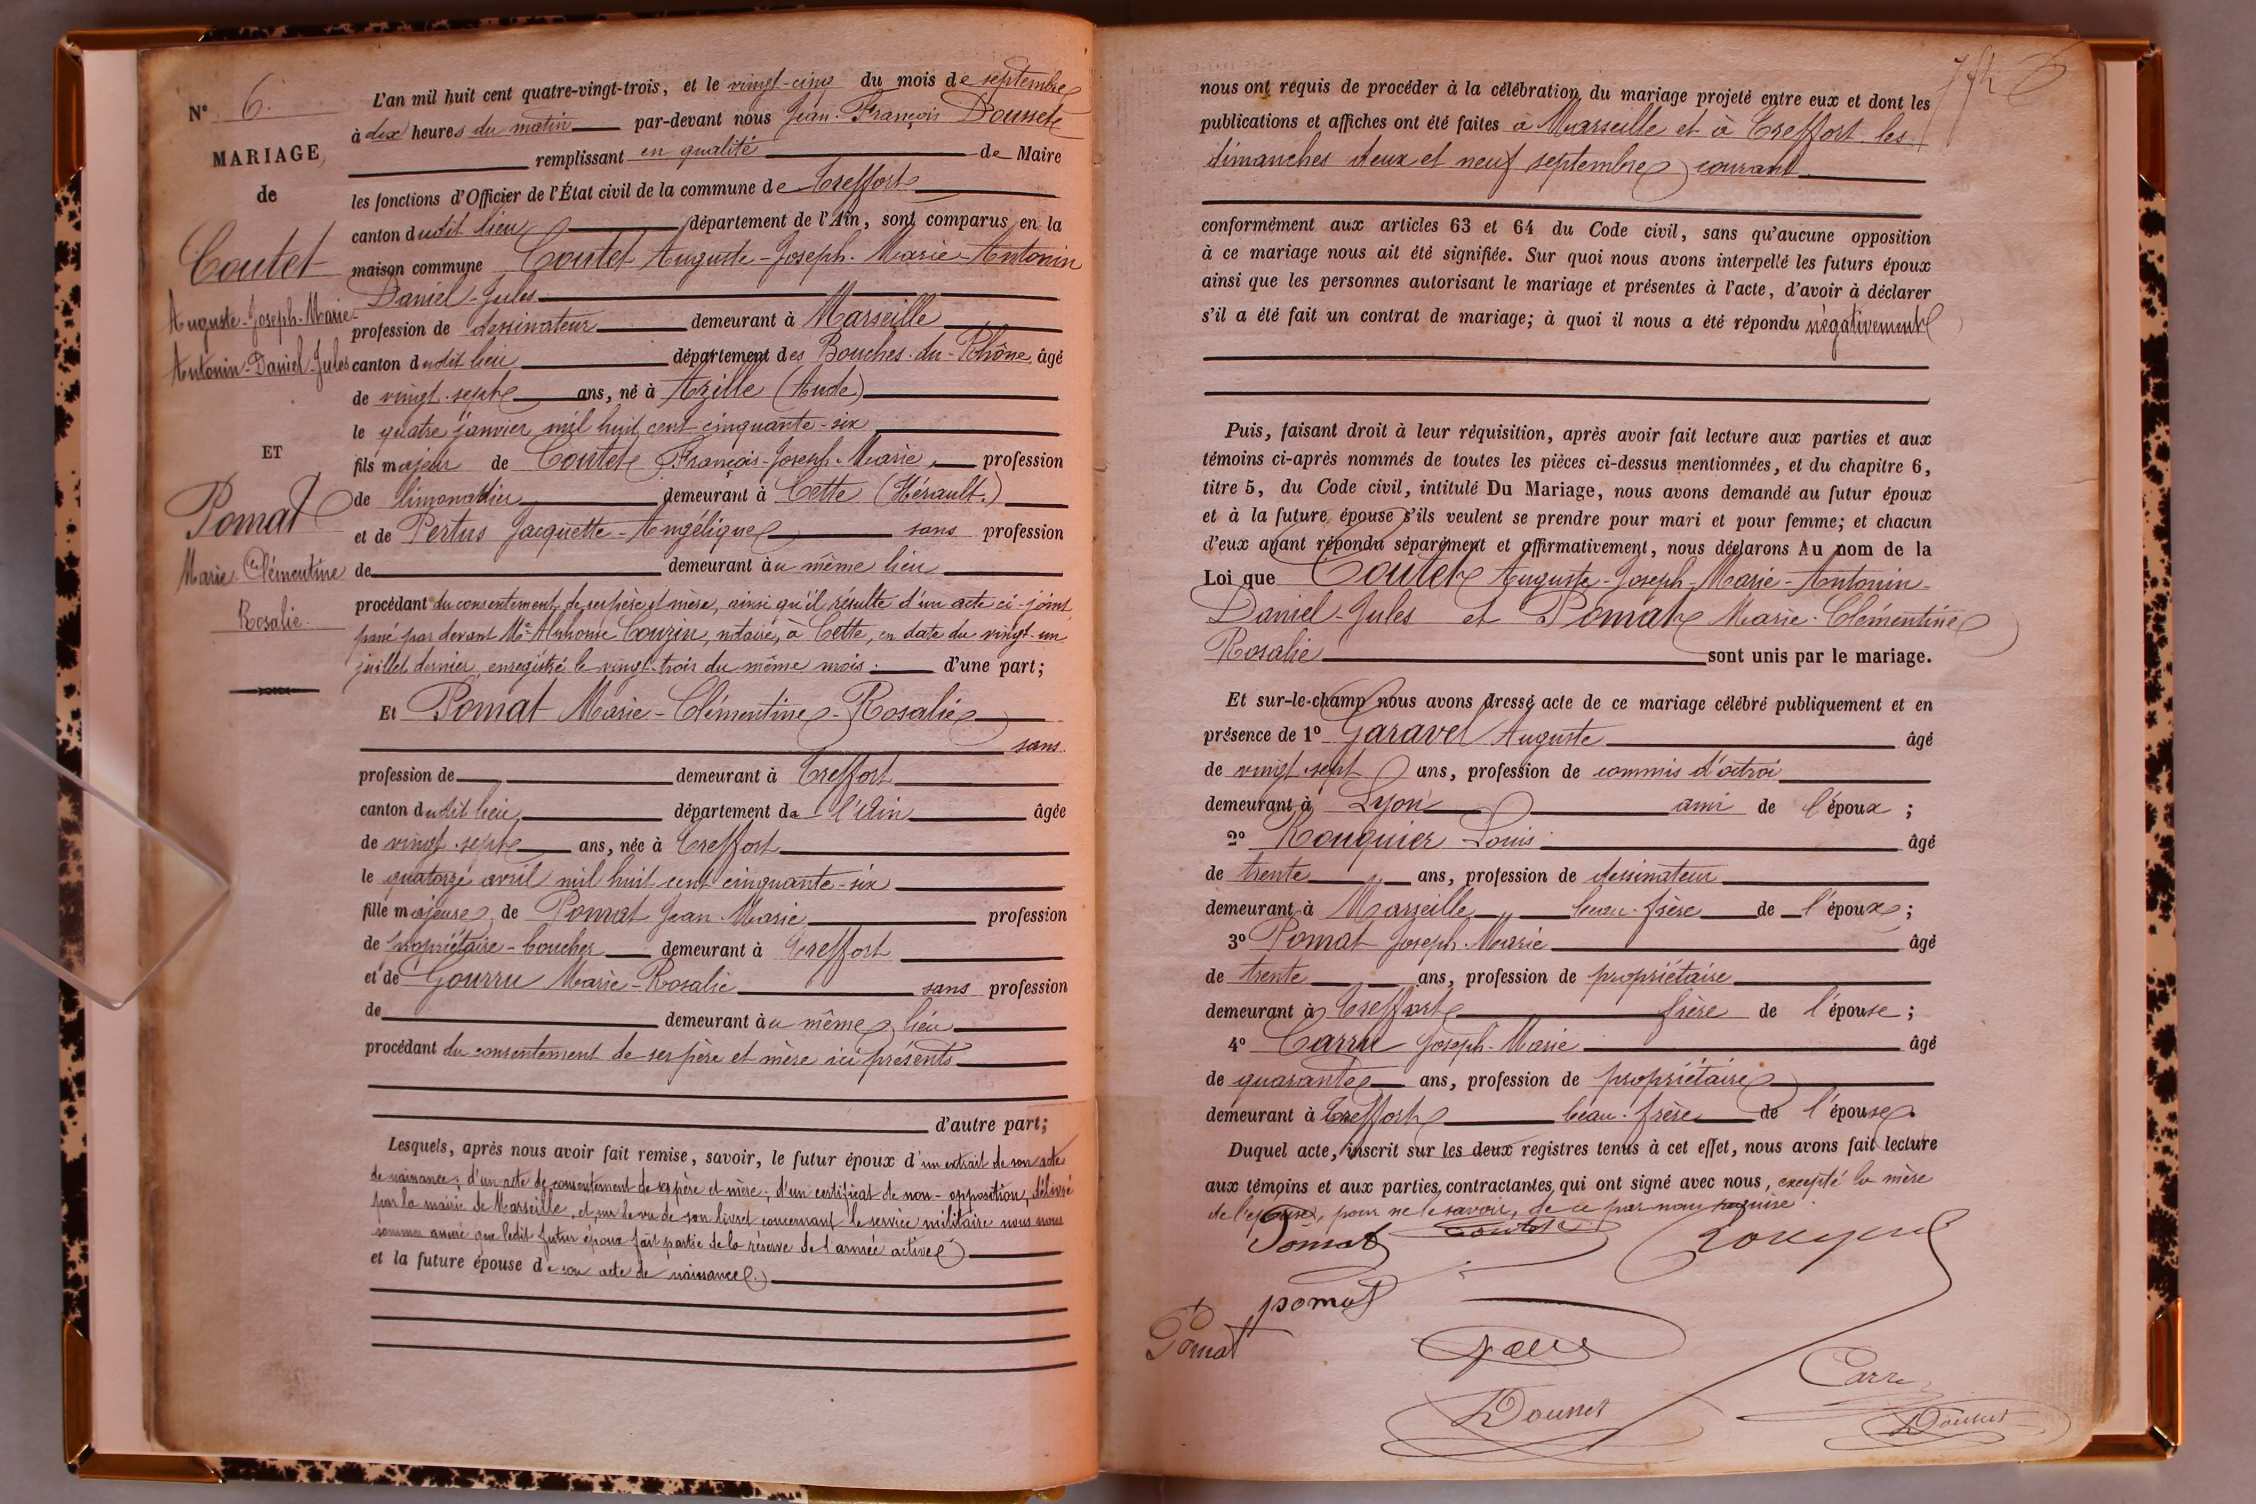 N° 6.
MARIAGE
de
Coutet
Auguste-Joseph-Marie-
Antonin-Daniel-Jules
ET
Pomat
Marie-Clémentine
Rosalie.
L'an mil huit cent quatre-vingt-trois, et le vingt-cinq du mois de septembre
à dix heures du matin par-devant nous Jean-François Dousset
remplissant en qualité de Maire
les fonctions d'Officier de l'État civil de la commune de Treffort
canton dudit lieu département de l'Ain, sont comparus en la
maison commune Coutet Auguste-Joseph-Marie-Antonin
Daniel-Jules
profession de dessinateur demeurant à Marseille
canton dudit lieu département des Bouches-du-Rhône âgé
de vingt-sept ans, né à Azille (Aude)
le quatre janvier mil huit cent cinquante-six
fils majeur de Coutet François-Joseph-Marie, profession
de limonadier demeurant à Cette (Hérault.)
et de Pertus Jacquette-Angélique sans profession
de demeurant au même lieu
procédant du consentement de ses père et mère, ainsi qu'il résulte d'un acte ci-joint
passé par devant Me Alphonse Couzin, notaire, à Cette, en date du vingt-un
juillet dernier, enregistré le vingt-trois du même mois. d'une part;
Et Pomat Marie-Clémentine-Rosalie
sans
profession de demeurant à Treffort
canton dudit lieu département de l'Ain âgée
de vingt-sept ans, née à Treffort
le quatorze avril mil huit cent cinquante-six
fille majeure de Pomat Jean-Marie profession
de propriétaire-boucher demeurant à Treffort
et de Gourru Marie-Rosalie sans profession
de demeurant au même lieu
procédant du consentement de ses père et mère ici présents
d'autre part;
Lesquels, après nous avoir fait remise, savoir, le futur époux d'un extrait de son acte
de naissance; d'un acte de consentement de ses père et mère; d'un certificat de non-opposition, délivré
par la mairie de Marseille, et, sur le vu de son livret concernant le service militaire nous nous
sommes assuré que ledit futur époux fait partie de la réserve de l'armée active
et la future épouse de son acte de naissance.
nous ont requis de procéder à la célébration du mariage projeté entre eux et dont les
publications et affiches ont été faites à Marseille et à Treffort les
dimanches deux et neuf septembre courant
conformément aux articles 63 et 64 du Code civil, sans qu'aucune opposition
à ce mariage nous ait été signifiée. Sur quoi nous avons interpellé les futurs époux
ainsi que les personnes autorisant le mariage et présentes à l'acte, d'avoir à déclarer
s'il a été fait un contrat de mariage; à quoi il nous a été répondu négativement
Puis, faisant droit à leur réquisition, après avoir fait lecture aux parties et aux
témoins ci-après nommés de toutes les pièces ci-dessus mentionnées, et du chapitre 6,
titre 5, du Code civil, intitulé Du Mariage, nous avons demandé au futur époux
et à la future épouse s'ils veulent se prendre pour mari et pour femme; et chacun
d'eux ayant répondu séparément et affirmativement, nous déclarons Au nom de la
Loi que Coutet Auguste-Joseph-Marie-Antonin-
Daniel-Jules et Pomat Marie-Clémentine
Rosalie sont unis par le mariage.
Et sur-le-champ nous avons dressé acte de ce mariage célébré publiquement et en
présence de 1° Garavel Auguste âgé
de vingt-sept ans, profession de commis d'octroi
demeurant à Lyon ami de l'époux;
2° Rouquier Louis âgé
de trente ans, profession de dessinateur
demeurant à Marseille beau-frère de l'époux;
3° Pomat Joseph-Marie âgé
de trente ans, profession de propriétaire
demeurant à Treffort frère de l'épouse;
4° Carru Joseph-Marie âgé
de quarante ans, profession de propriétaire
demeurant à Treffort beau-frère de l'épouse.
Duquel acte, inscrit sur les deux registres tenus à cet effet, nous avons fait lecture
aux témoins et aux parties contractantes qui ont signé avec nous, excepté la mère
de l'épouse, pour ne le savoir, de ce par nous requise.
Pomat Coutet Rouquier
pomat
Pomat
Carru
Dousset
Dousset